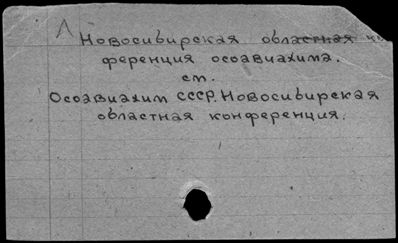 Новосибирская областная кон
ференция осоавиахима.
см.
Осоавиахим СССР. Новосибирская
областная конференция.